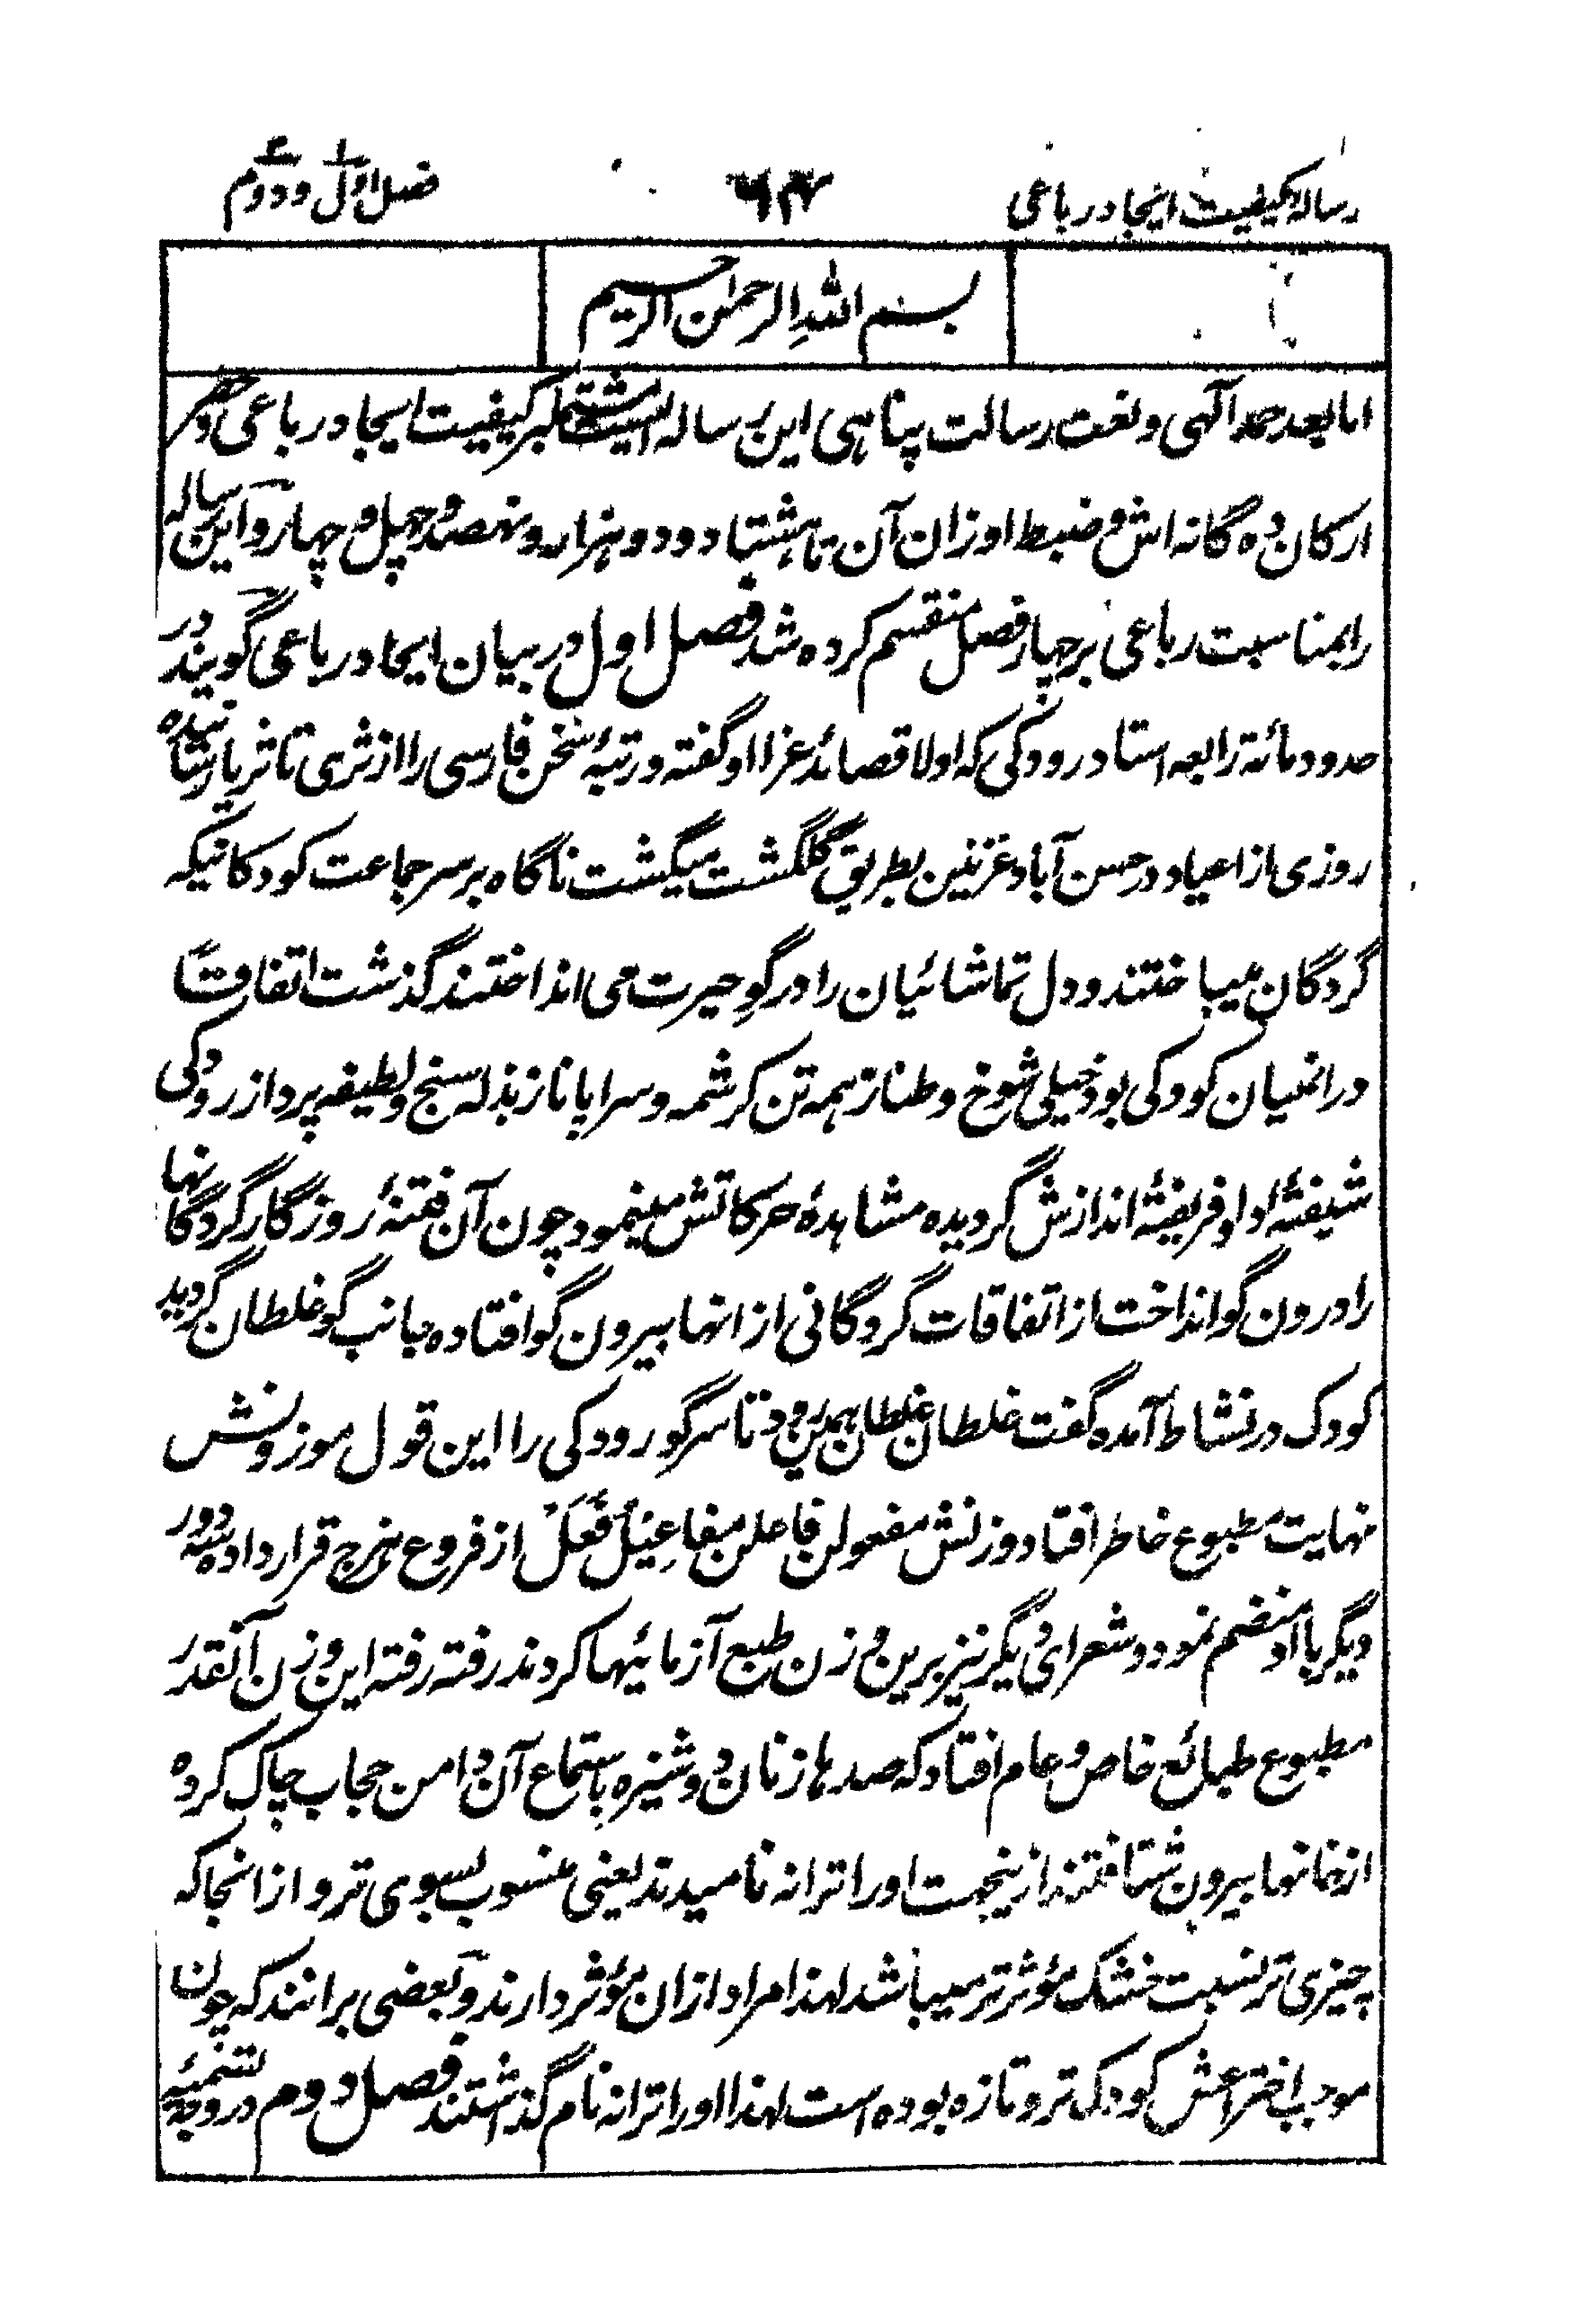 رساله کیفیت ایجاد رباعی
۶۴
فصل اول و دوم
بسم الله الرحمن الرحیم
اما بعد حمد آلهی و نعت رسالت پناهی این رساله ایست مشتمل بر کیفیت ایجاد رباعی و حصر
ارکان ده گانه اش و ضبط اوزان آن تا هشتاد و دو هزار و نهصد و چهل و چهار و این رساله
را بمناسبت رباعی بر چهار فصل منقسم کرده شد فصل اول در بیان ایجاد رباعی گویند در
حدود مائة رابعه استاد رودکی که اولا قصائد غرا او گفته و رتبۀ سخن فارسی را از ثری تا ثریا رسانیده
روزی از اعیاد در حسن آباد غزنین بطریق گلگشت میگشت ناگاه بر سر جماعت کودکانیکه
گردگان میباختند و دل تماشائیان را در گو حیرت می انداختند گذشت اتفاقاً
در انمیان کودکی بود خیلی شوخ و طناز همه تن کرشمه و سراپا ناز بذله سنج و لطیفه پرداز رودکی
شیفتۀ ادا و فریفتۀ اندازش گردیده مشاهدۀ حرکاتش مینمود چون آن فتنۀ روزگار گردگانها
را درون گو انداخت از اتفاقات گردگانی از انها بیرون گو افتاده جانب گو غلطان گردید
کودک در نشاط آمده گفت غلطان غلطان همی رود تا سر گو رودکی را این قول موزونش
نهایت مطبوع خاطر افتاد وزنش مفعولن فاعلن مفاعیلُ فَعَلْ از فروع هزج قرار داده سه دور
دیگر با او منضم نمود و شعرای دیگر نیز برین وزن طبع آزمائیها کردند رفته رفته این وزن آنقدر
مطبوع طبائع خاص و عام افتاد که صدها زنان دوشیزه باستماع آن دامن حجاب چاک کرده
از خانها بیرون شتافتند ازینجهت او را ترانه نامیدند یعنی منسوب بسوی تر و از انجا که
چیزی تر نسبت خشک مؤثرتر میباشد لهذا مراد ازان مؤثر دارند و بعضی برانند که چون
موجب اختراعش کودک تر و تازه بوده است لهذا او را ترانه نام گذاشتند فصل دوم در وجه تسمیۀ